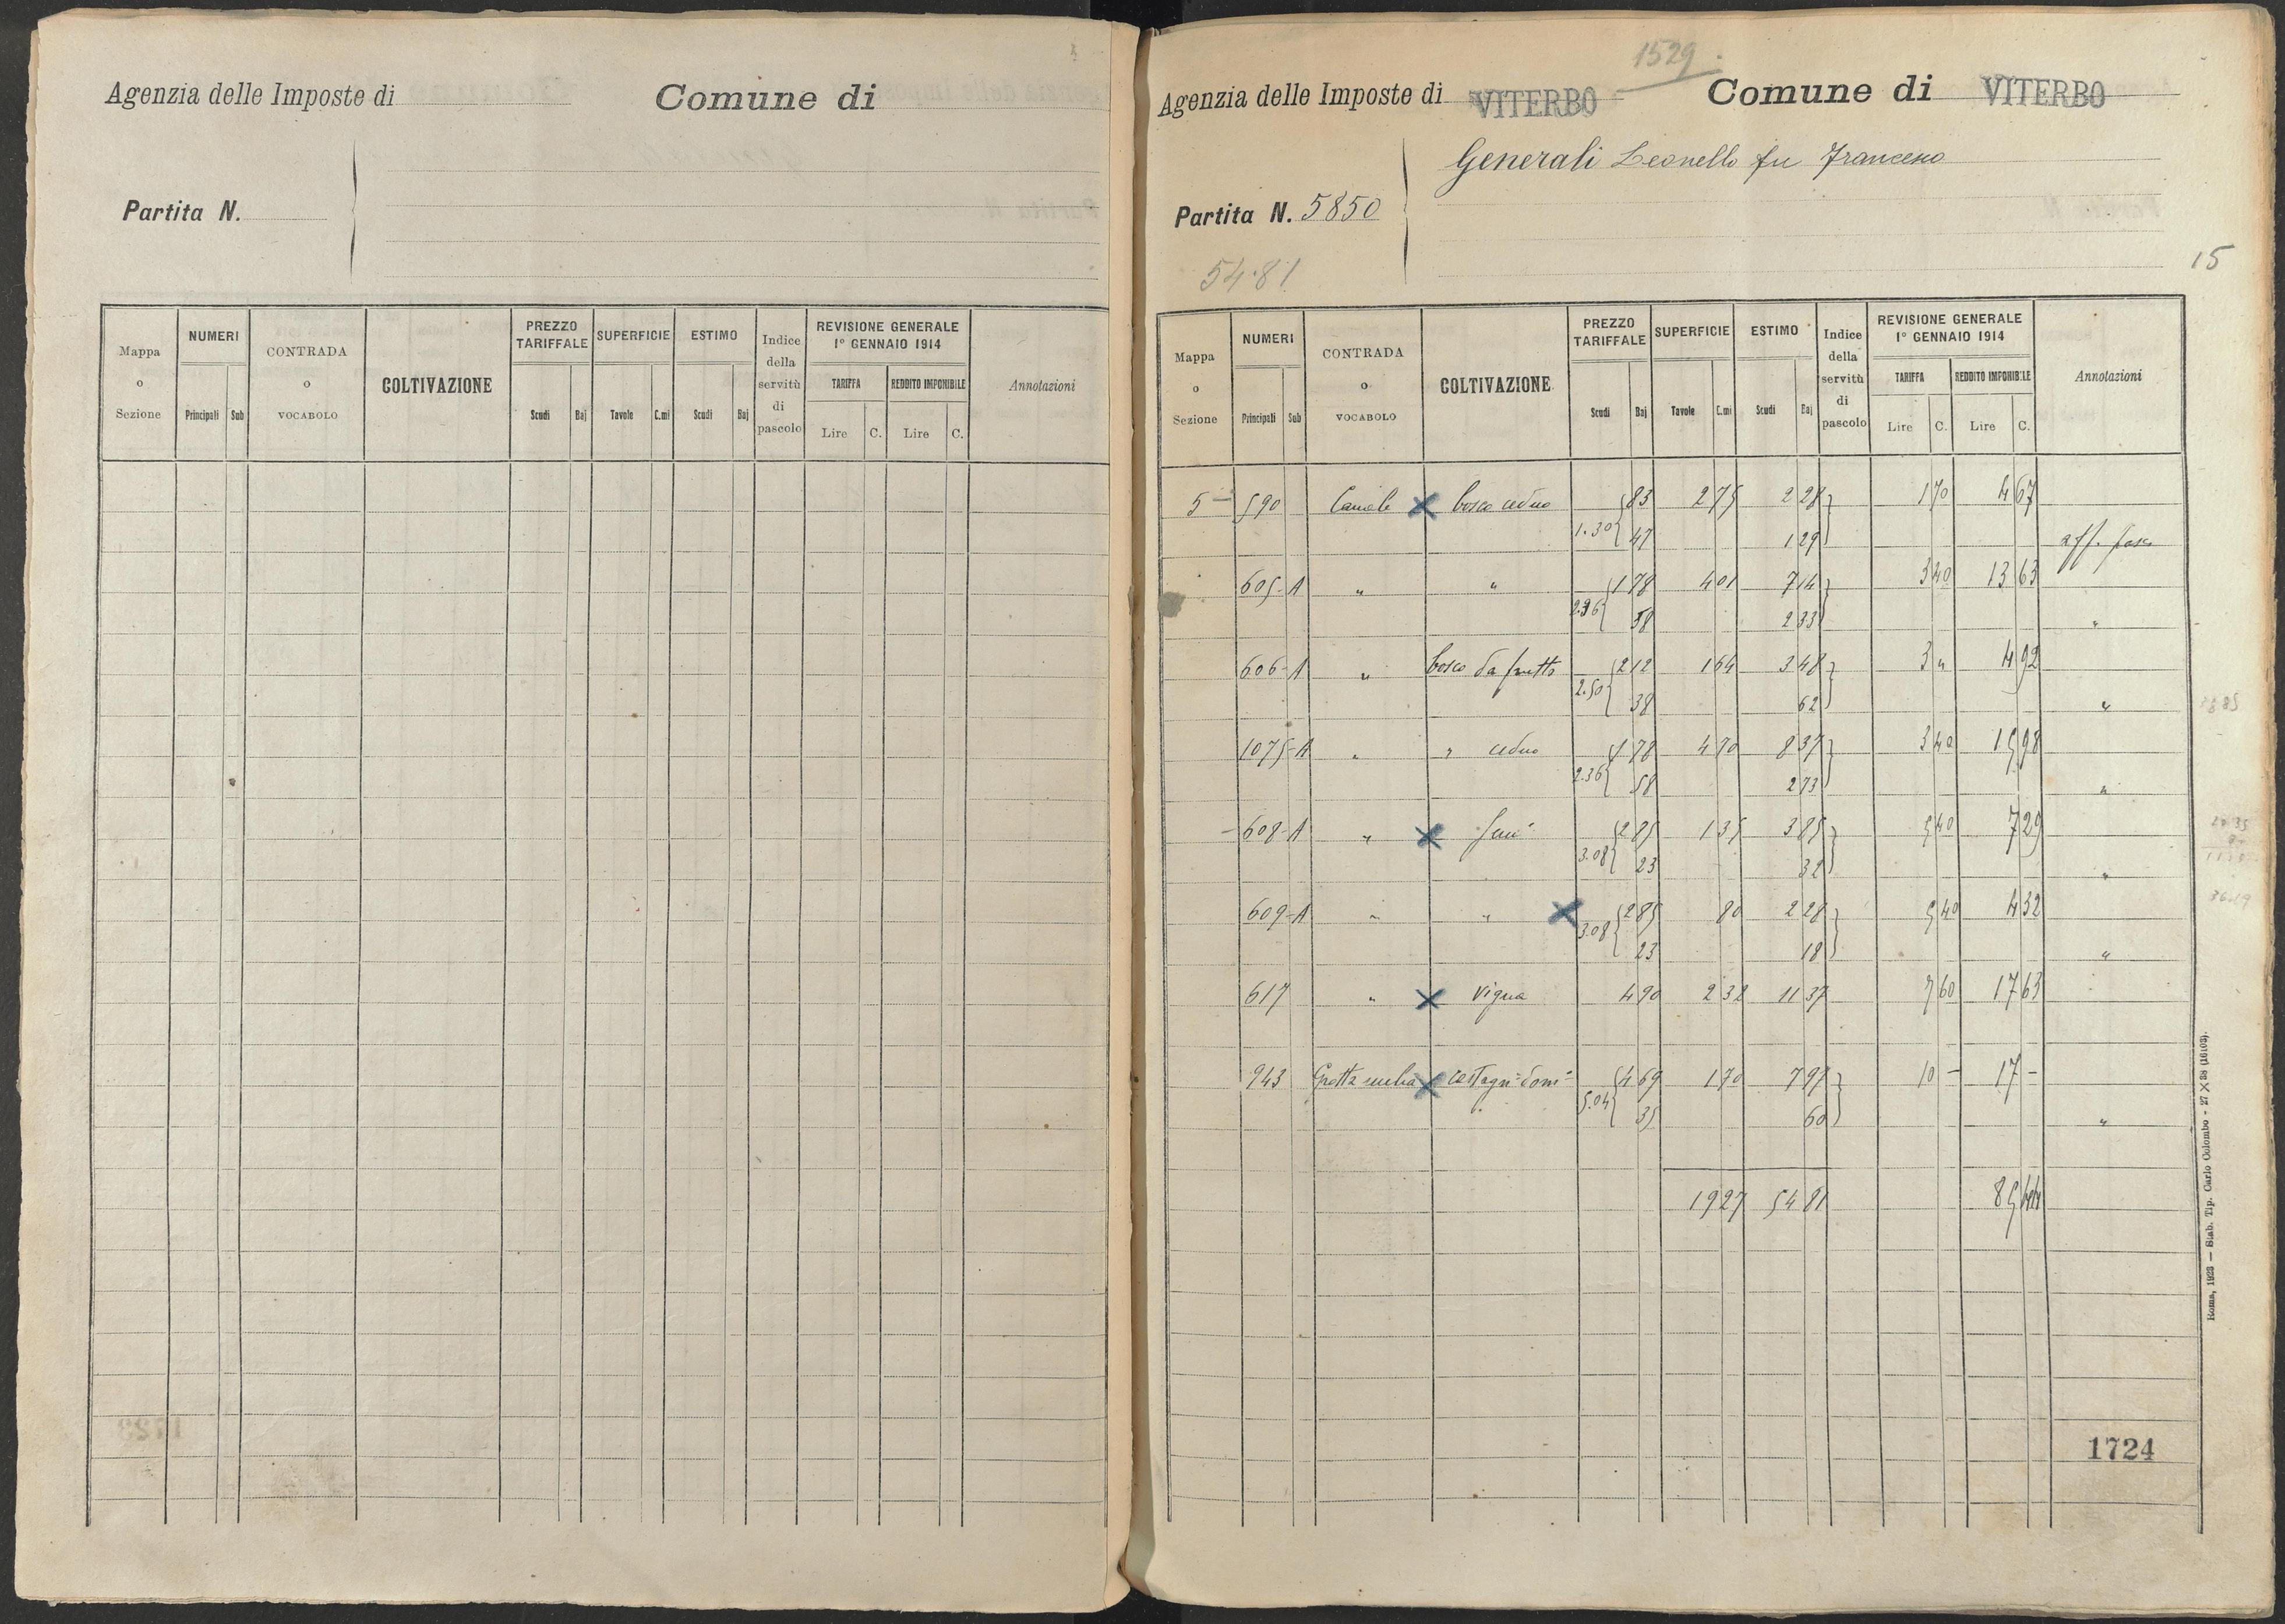 Agenzia delle Imposte di Comune di
Partita N.
Mappa o Sezione NUMERI Principali Sub CONTRADA o VOCABOLO COLTIVAZIONE PREZZO TARIFFALE Scudi Baj SUPERFICIE Tavole C.mi ESTIMO Scudi Baj Indice della servitù di pascolo REVISIONE GENERALE 1° GENNAIO 1914 TARIFFA Lire C. REDDITO IMPONIBILE Lire C. Annotazioni
1529.
Agenzia delle Imposte di VITERBO Comune di VITERBO
Generali Leonello fu Francesco
Partita N. 5850
15
54.81
Mappa o Sezione NUMERI Principali Sub CONTRADA o VOCABOLO COLTIVAZIONE PREZZO TARIFFALE Scudi Baj SUPERFICIE Tavole C.mi ESTIMO Scudi Baj Indice della servitù di pascolo REVISIONE GENERALE 1° GENNAIO 1914 TARIFFA Lire C. REDDITO IMPONIBILE Lire C. Annotazioni
5 590 Canale bosco ceduo 83 2 75 2 28 1 70 4 67
1.30 47 1 29 aff. pasc
605 A " " 1 78 4 01 7 14 3 40 13 63
2.36 58 2 33 "
606 A " bosco da frutto 2 12 1 64 3 48 3 " 4 92
2.50 38 62 "
1075 A " " ceduo 1 78 4 70 8 37 3 40 15 98
2.36 58 2 73 "
608 A " 2 85 1 35 3 85 5 40 7 29
3.08 23 32 "
609 A " " 2 85 80 2 28 5 40 4 32
3.08 23 18 "
617 " Vigna 4 90 2 32 11 37 7 60 17 63
943 castagn: dom: 4 69 1 70 7 97 10 - 17 -
5.04 35 60 "
19 27 54 81 85 44
1724
Roma, 1923 — Stab. Tip. Carlo Colombo - 27 X 38 (16103).